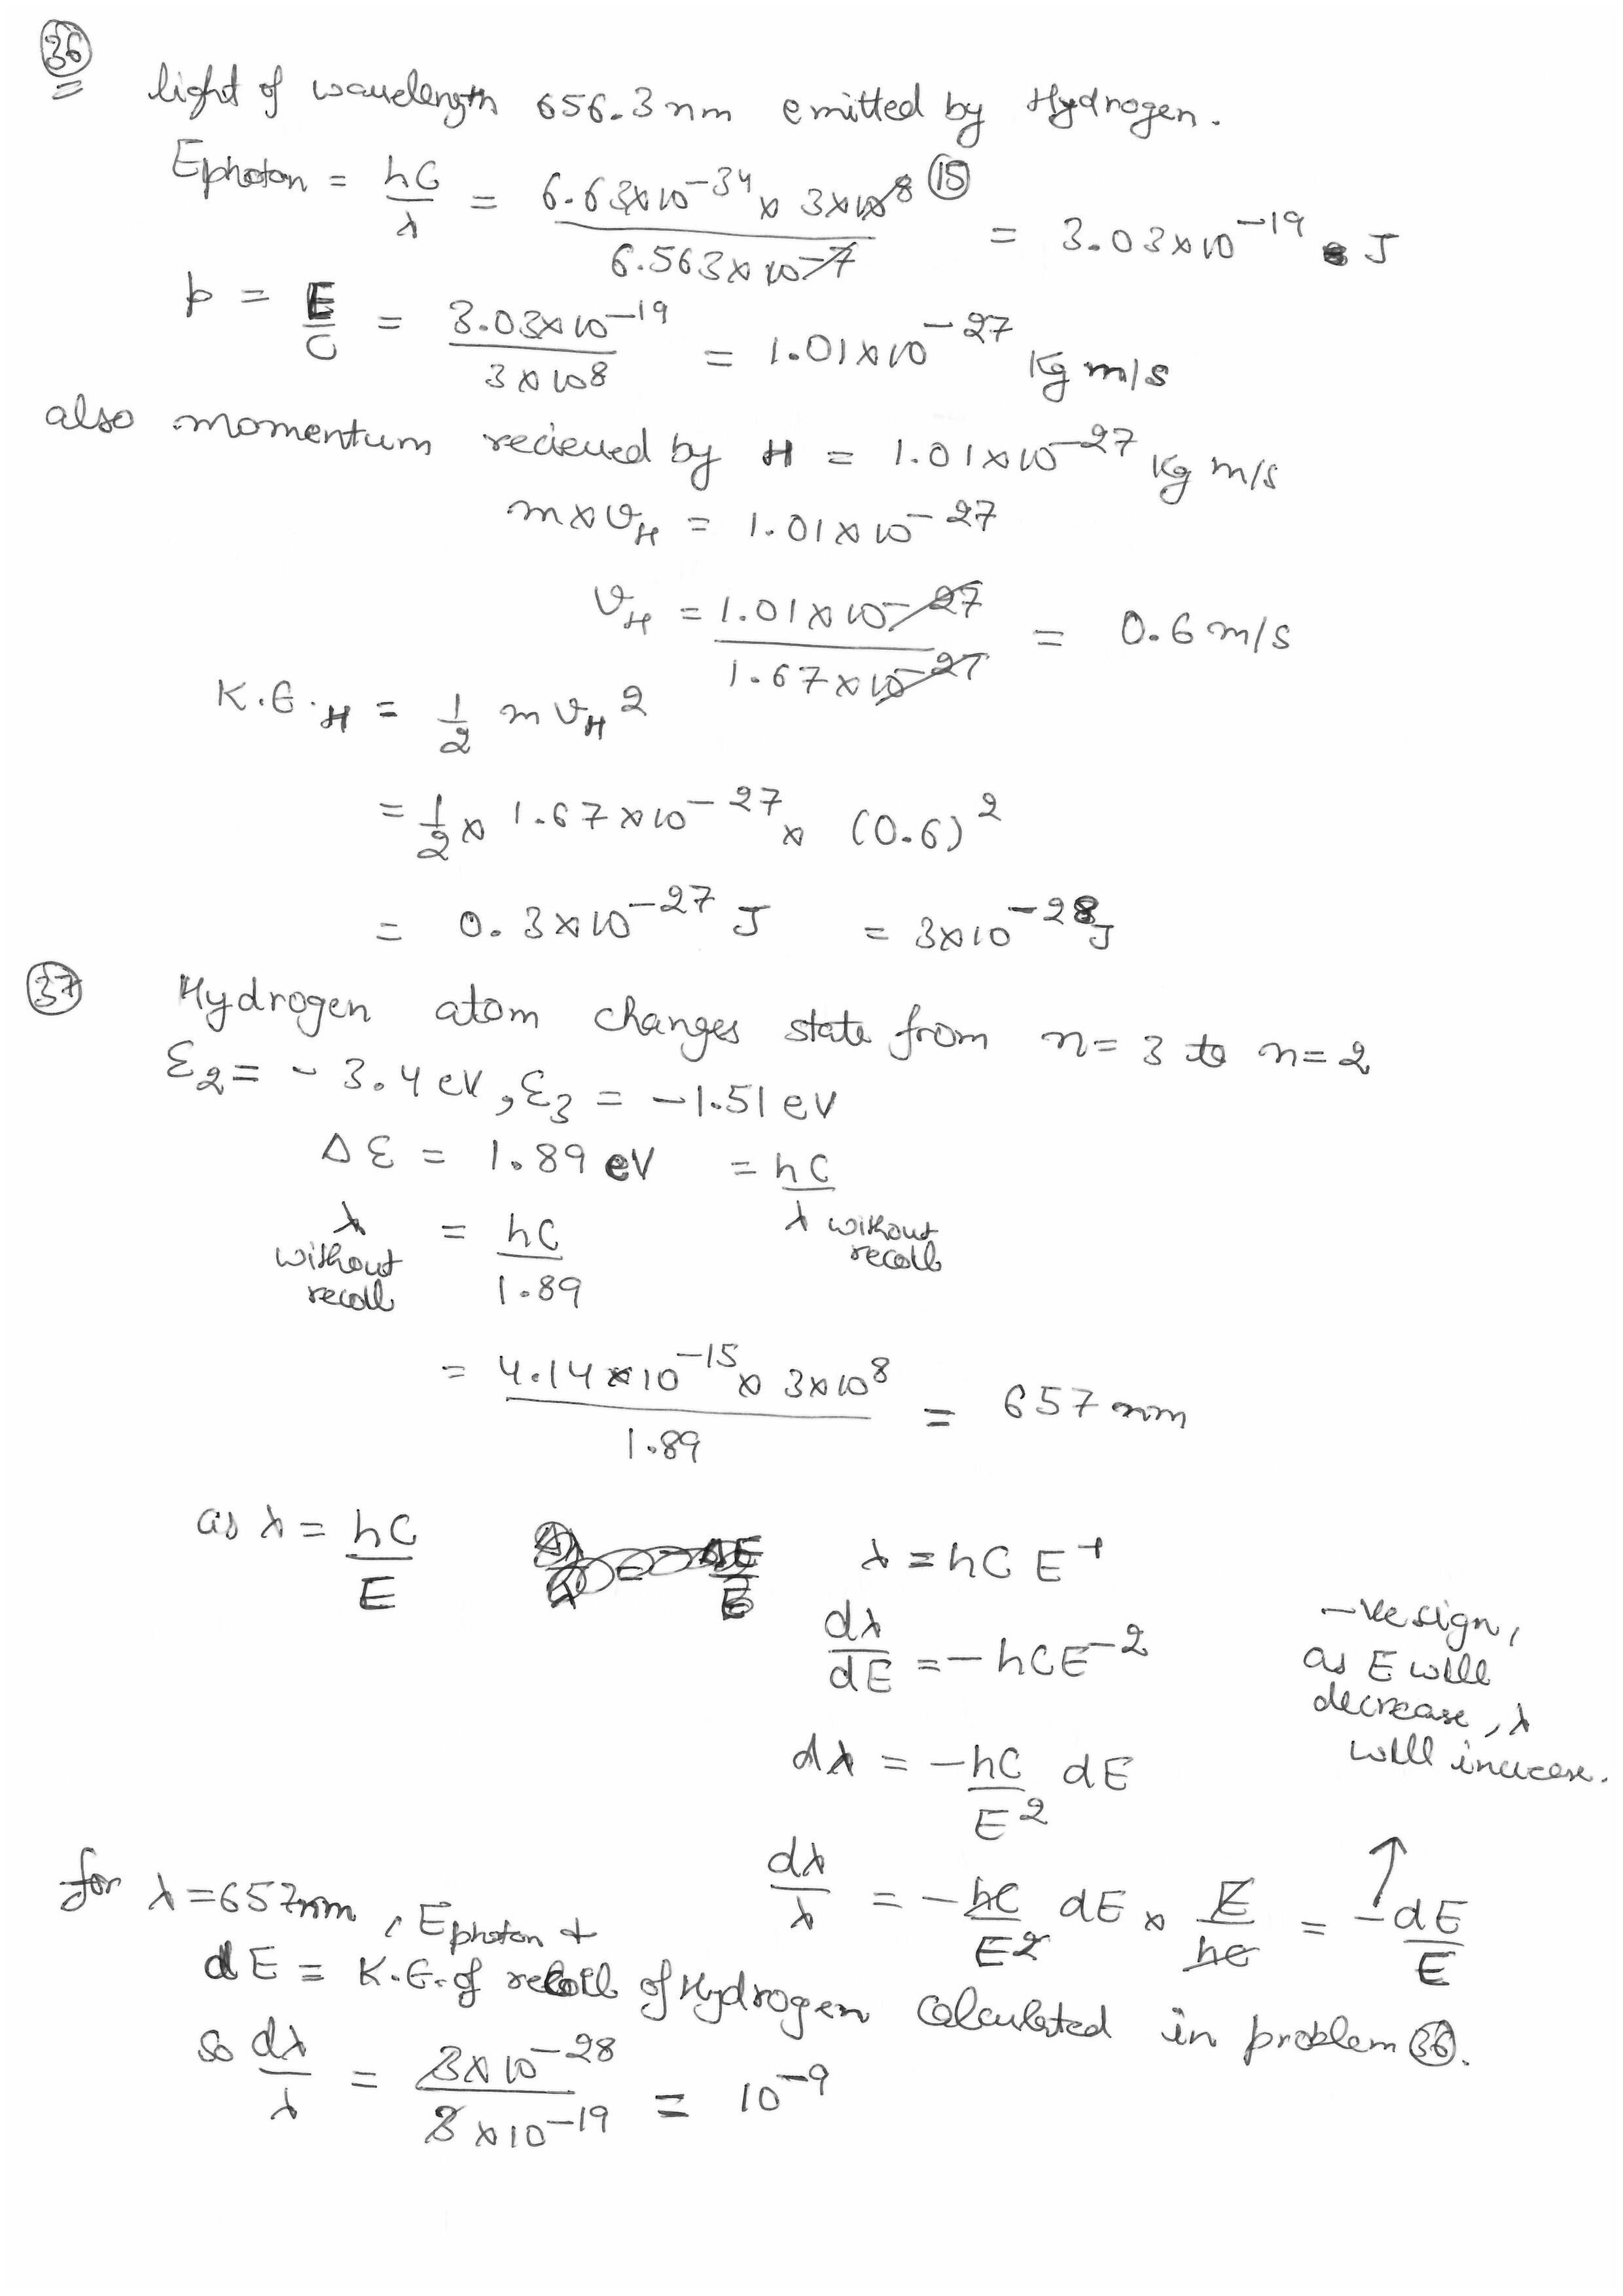 36
light of wavelength 656.3 nm emitted by Hydrogen.
Ephoton = hC/λ = 6.63×10^-34 × 3×10^8 (15) / 6.563×10^-7 = 3.03×10^-19 J
p = E/C = 3.03×10^-19 / 3×10^8 = 1.01×10^-27 Kg m/s
also momentum recieved by H = 1.01×10^-27 Kg m/s
m×v_H = 1.01×10^-27
v_H = 1.01×10^-27 / 1.67×10^-27 = 0.6 m/s
K.E._H = 1/2 m v_H^2
= 1/2 × 1.67×10^-27 × (0.6)^2
= 0.3×10^-27 J = 3×10^-28 J
37 Hydrogen atom changes state from n=3 to n=2
E_2 = -3.4 eV, E_3 = -1.51 eV
ΔE = 1.89 eV = hC / λ without recoil
λ without recoil = hC / 1.89
= 4.14×10^-15 × 3×10^8 / 1.89 = 657 nm
as λ = hC/E λ = hC E^-1
dλ/dE = -hCE^-2
-ve sign,
as E will
decrease, λ
will increase.
dλ = -hC/E^2 dE
dλ/λ = -hC/E^2 dE × E/hC = -dE/E ↑
for λ=657nm, Ephoton &
dE = K.E. of recoil of Hydrogen calculated in problem 36.
so dλ/λ = 3×10^-28 / 3×10^-19 = 10^-9